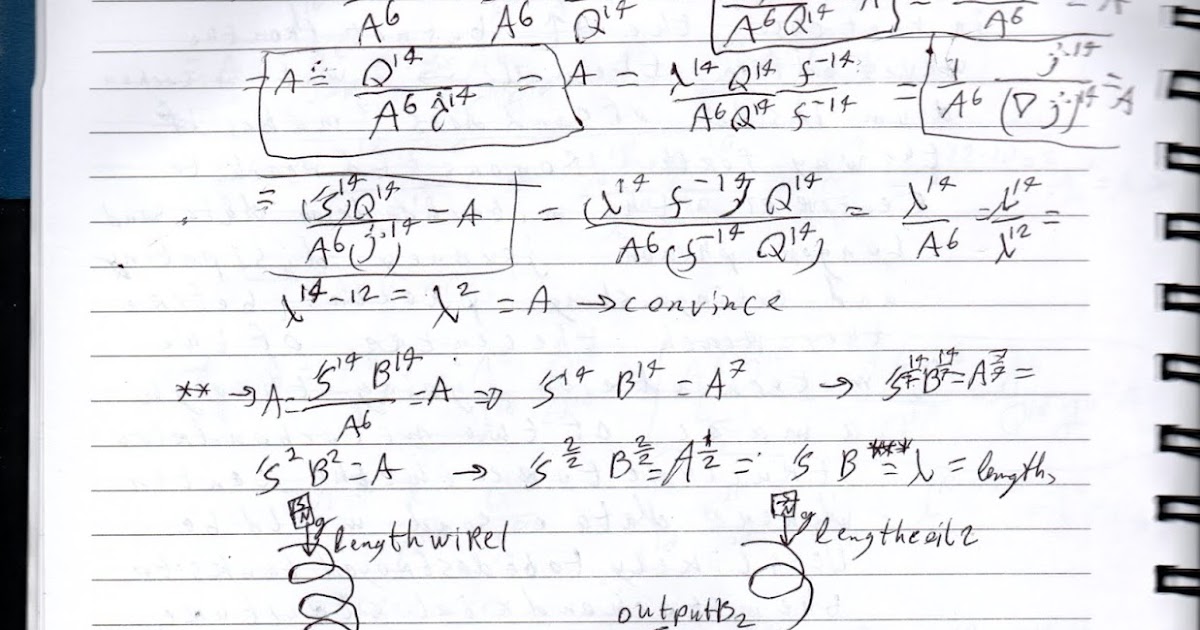 A⁶ A⁶ Q¹⁴ A⁶Q¹⁴ A⁶
= A = Q¹⁴ / A⁶ j¹⁴ = A = λ¹⁴ Q¹⁴ f⁻¹⁴ / A⁶Q¹⁴ f⁻¹⁴ = 1/A⁶ j¹⁴/(∇ j)¹⁴ = A
= (S)¹⁴Q¹⁴ / A⁶(j)¹⁴ = A = (λ¹⁴ f⁻¹⁴) Q¹⁴ / A⁶(f⁻¹⁴ Q¹⁴) = λ¹⁴/A⁶ = λ¹⁴/λ¹² =
λ¹⁴⁻¹² = λ² = A → convince
** → A = S¹⁴ B¹⁴ / A⁶ = A ⇒ S¹⁴ B¹⁴ = A⁷ → S^14/7 B^14/7 = A^7/7 =
S² B² = A → S^2/2 B^2/2 = A^1/2 = S B *** = λ = length,
length wire1 length coil 2
output B₂